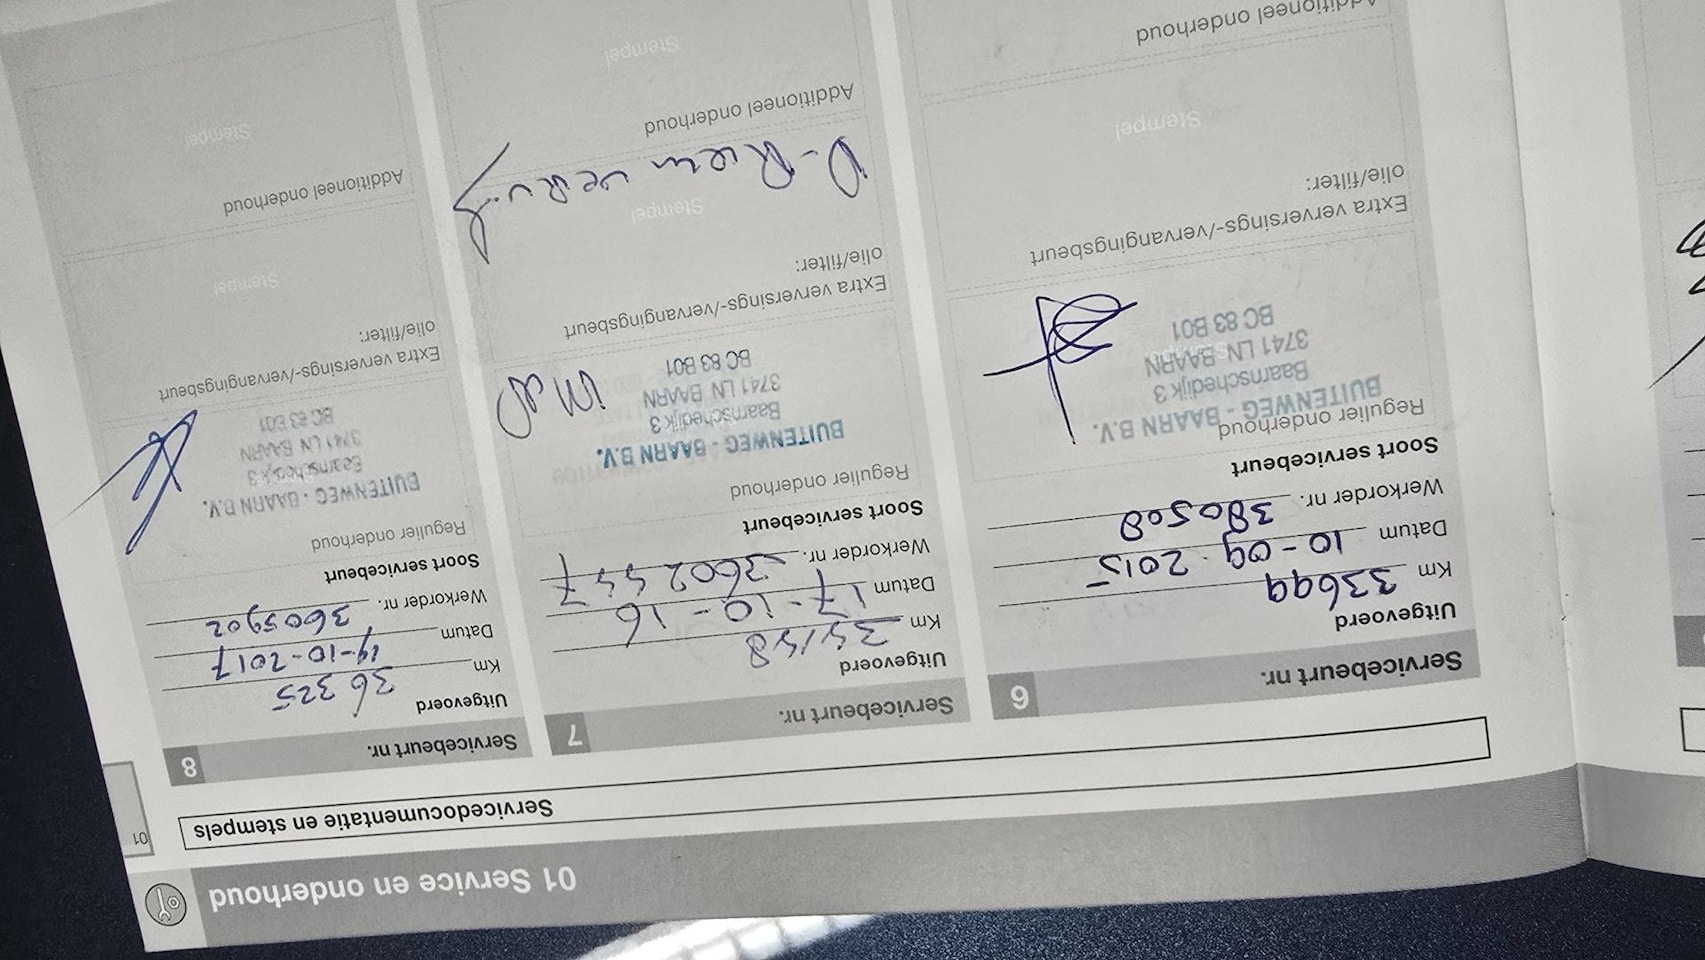 01 Service en onderhoud
01
Servicedocumentatie en stempels
Servicebeurt nr. 6
Uitgevoerd
Km 33699
Datum 10-09-2015
Werkorder nr. 380508
Soort servicebeurt
Regulier onderhoud
BUITENWEG - BAARN B.V.
Baarnschedijk 3
3741 LN BAARN
BC 83 B01
Extra verversings-/vervangingsbeurt
olie/filter:
Stempel
Additioneel onderhoud
Servicebeurt nr. 7
Uitgevoerd
Km
Datum 17-10-16
Werkorder nr.
Soort servicebeurt
Regulier onderhoud
BUITENWEG - BAARN B.V.
Baarnschedijk 3
3741 LN BAARN
BC 83 B01
Extra verversings-/vervangingsbeurt
olie/filter:
Stempel
Additioneel onderhoud
Stempel
Servicebeurt nr. 8
Uitgevoerd
Km 36325
Datum 19-10-2017
Werkorder nr. 3605902
Soort servicebeurt
Regulier onderhoud
BUITENWEG - BAARN B.V.
Baarnschedijk 3
3741 LN BAARN
BC 83 B01
Extra verversings-/vervangingsbeurt
olie/filter:
Stempel
Additioneel onderhoud
Stempel